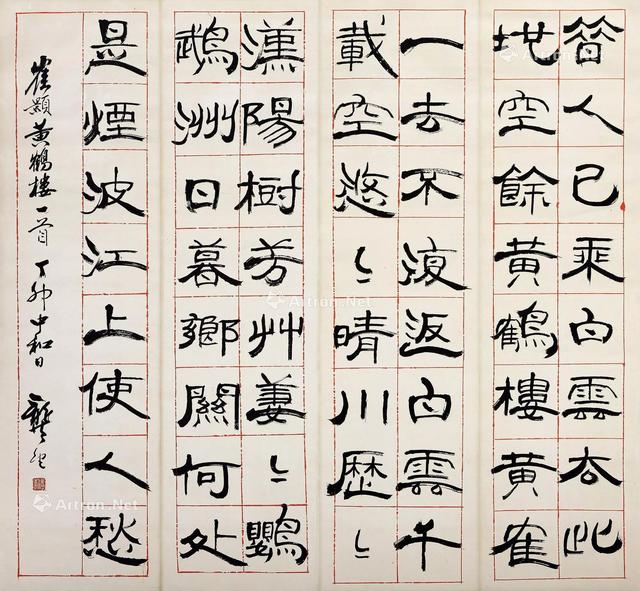 昔人已乘白雲去此
地空餘黃鶴樓黃寉
一去不復返白雲千
載空悠〻晴川歷〻
漢陽樹芳艸萋〻鸚
鵡洲日暮鄉關何处
是煙波江上使人愁
崔顥黃鶴樓一首 丁卯中和日 龔望
Artron.Net
Artron.Net
Artron.Net